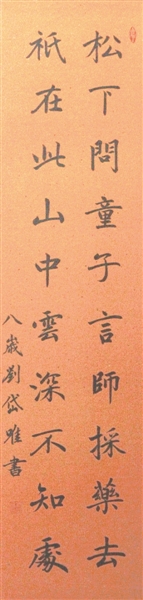 松下問童子言師採藥去
祇在此山中雲深不知處
八歲劉岱雎書